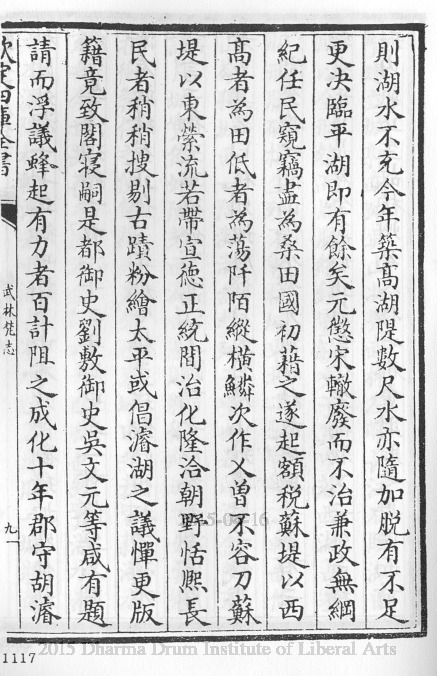 則湖水不充今年築髙湖隄數尺水亦隨加脱有不足
更決臨平湖即有餘矣元懲宋轍廢而不治兼政無綱
紀任民窺竊盡為桑田國初藉之遂起額税蘇堤以西
髙者為田低者為蕩阡陌縱横鱗次作乂曾不容刀蘇
堤以東縈流若帶宣德正統間治化隆洽朝野恬熙長
民者稍稍搜剔古蹟粉繪太平或倡濬湖之議憚更版
籍竟致閣寝嗣是都御史劉敷御史吳文元等咸有題
請而浮議蜂起有力者百計阻之成化十年郡守胡濬
欽定四庫全書
武林梵志
九
1117
2015 Dharma Drum Institute of Liberal Arts